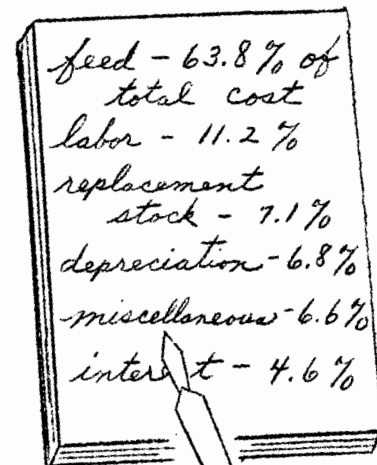 feed - 63.8% of
total cost
labor - 11.2%
replacement
stock - 7.1%
depreciation - 6.8%
miscellaneous - 6.6%
interest - 4.6%